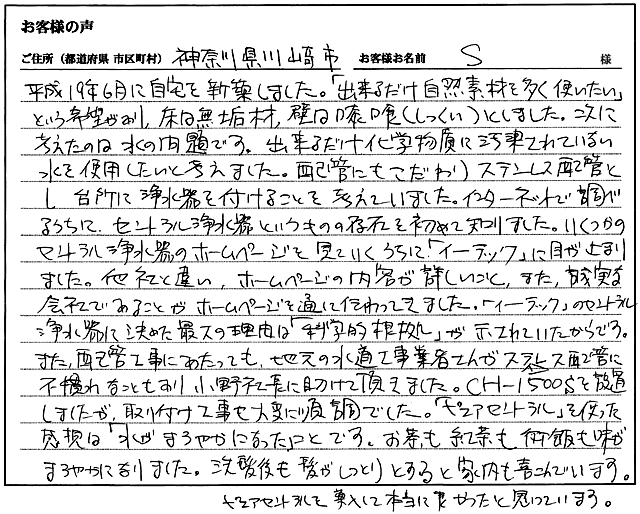 お客様の声
ご住所（都道府県 市区町村） 神奈川県川崎市 お客様お名前 S 様
平成19年6月に自宅を新築しました。「出来るだけ自然素材を多く使いたい」
という希望があり、床は無垢材、壁は漆喰（しっくい）としました。次に
考えたのは水の問題です。出来るだけ化学物質に汚染されていない
水を使用したいと考えました。配管にもこだわりステンレス配管と
し、台所に浄水器を付けることを考えていました。インターネットで調べ
るうちに、セントラル浄水器というものの存在を初めて知りました。いくつかの
セントラル浄水器のホームページを見ていくうちに「イーテック」に目が止まり
ました。他社と違い、ホームページの内容が詳しいこと、また、誠実な
会社であることがホームページを通じて伝わってきました。「イーテック」のセントラル
浄水器に決めた最大の理由は「科学的根拠」が示されていたからです。
また、配管工事にあたっても、地元の水道工事業者さんがステンレス配管に
不慣れなこともあり小野社長に助けて頂きました。CH-1500Sを設置
しましたが、取り付け工事も大変に順調でした。「ピュアセントラル」を使った
感想は「水がまろやかになった」ことです。お茶も紅茶も御飯も味が
まろやかになりました。洗髪後も髪がしっとりとすると家内も喜んでいます。
ピュアセントラルを導入して本当に良かったと思っています。